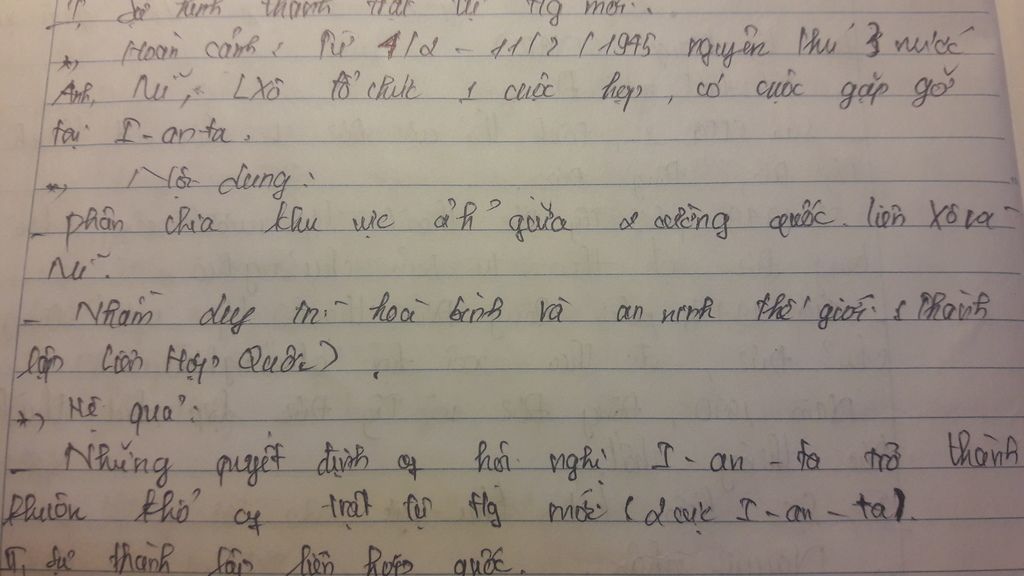 I, Sự hình thành trật tự tg mới.
*, Hoàn cảnh: Từ 4/2 - 11/2/1945 nguyên thủ 3 nước
Anh, Mĩ, LXô tổ chức 1 cuộc họp, có cuộc gặp gỡ
tại I-an-ta.
*, Nội dung:
- phân chia khu vực ả/h' giữa 2 cường quốc liên Xô và
Mĩ.
- Nhằm duy trì hoà bình và an ninh thế giới (thành
lập Liên Hợp Quốc).
*, Hệ quả:
- Những quyết định of hội nghị I-an-ta trở thành
khuôn khổ of trật tự tg mới (2 cực I-an-ta).
II, sự thành lập liên hợp quốc.